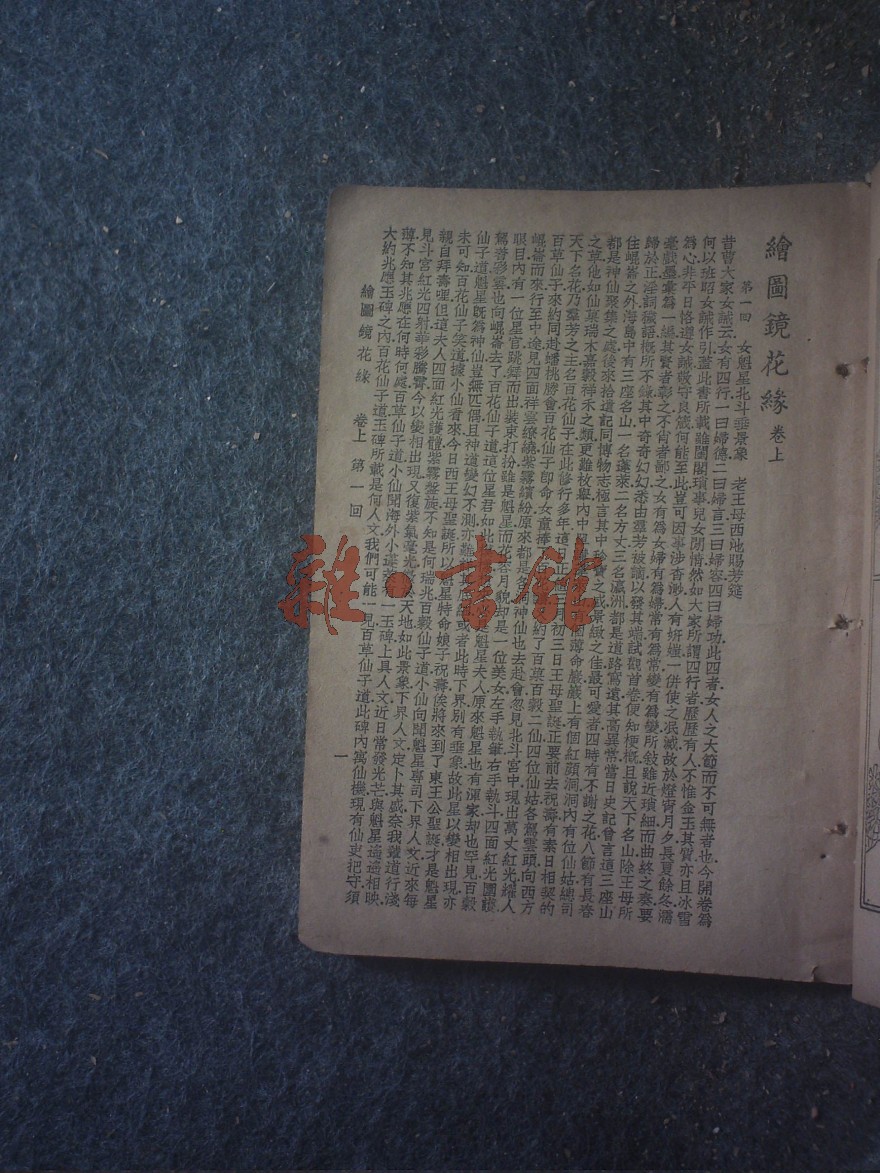 繪圖鏡花緣 卷上
第一回 女魁星北斗垂景象 老王母西池賜芳筵
昔曹大家女誡云.女有四行.一曰婦德.二曰婦言.三曰婦容.四曰婦功.此四者.女人之大節.而不可無者也.今開卷爲
何以班昭女誡作引.蓋此書所載.雖閨閣瑣事.兒女閒情.然如大家所謂四行者.歷歷有人.不惟金玉其質.亦且冰雪
爲心.非平日恪遵女誡.敬守良箴.何能至此.豈可因事涉杳渺.人有妍媸.一併使之泯滅.故於燈宵月夕.長夏餘冬.濡
毫戲墨.彙爲一編.其賢者彰之.不肖者鄙之.女有爲女.婦有爲婦.常有爲常.變有爲變.所敍雖近瑣細.而曲終之奏.要
歸於正.淫詞穢語.概所不錄.其中奇奇幻幻.悉由羣芳被謫.以發其端.試觀首卷.便知梗概.且說天下名山.除王母所
住崐崙之外.海島中有三座名山.一名蓬萊.二名方丈.三名瀛洲.都是道路窵遠.其高異常.當日史記曾言這三座山
都是神仙聚集之處.後來拾遺記同博物志極言其中珍寶之盛.景緻之佳.最可愛者.四時有不謝之花.八節有長春
之草.他如仙菓瑞木嘉穀祥禾之類.更難枚舉.內中 個薄命巖.巖上有個紅顏洞.洞內有位仙姑.總司
天下名花.乃羣芳之主.名百花仙子.在此修行多年.這日正 月初三日王母聖誕.正要前去祝壽.有素日相契的
百草仙子來約同赴蟠桃勝會.百花仙子卽命女童捧 約了百菓百穀二仙.四位仙姑.各駕雲頭.向西方
崐崙而來.行至中途.見四面祥雲繚繞.紫霧繽紛.原來都是各洞神仙也去赴會.忽見北斗宮中現出萬丈紅光.耀人
眼目.內有一位星官.跳舞而出.裝束打扮.雖是魁星.而花容月貌.却是一位美女.左手執筆.右手執斗.四面紅光圍護.
駕著彩雲.也向崐崙去了.百花仙子道.這位星君如此 魁星夫人.原來魁星也有渾家.却也罕見.百穀
仙子道.魁星旣爲神仙.豈無匹偶.且神道變幻不測.亦難 或者此時下界別有垂象.故此星以變相出現.亦
未可知.百花仙子笑道.據小仙看來.今日西王母聖誕.所以魁星特命娘子祝壽.俟將來到了東王公聖誕.才是魁星
親自拜壽哩.但這夫人四面紅光護體.紫霧盤旋.不知是何瑞兆.百穀仙子道.小仙向聞魁星專司下界人文.近來每
見斗宮紅光四射.華彩騰霄.今以變相出現.又復紫氣毫光 天地.如此景象.下界人文.定卜其盛.奈我輩道行淺
薄.不知其兆應在何時何處.百草仙子道.小仙聞海外小蓬萊有一玉碑.上具人文.近日常發光芒.與魁星遙遙相映.
大約兆應玉碑之內.百花仙子道.玉碑所載是何人文.我們可能一見.百草仙子道.此碑內寓仙機.現有仙吏把守.須
繪圖鏡花緣 卷上 第一回 一
雜·書館